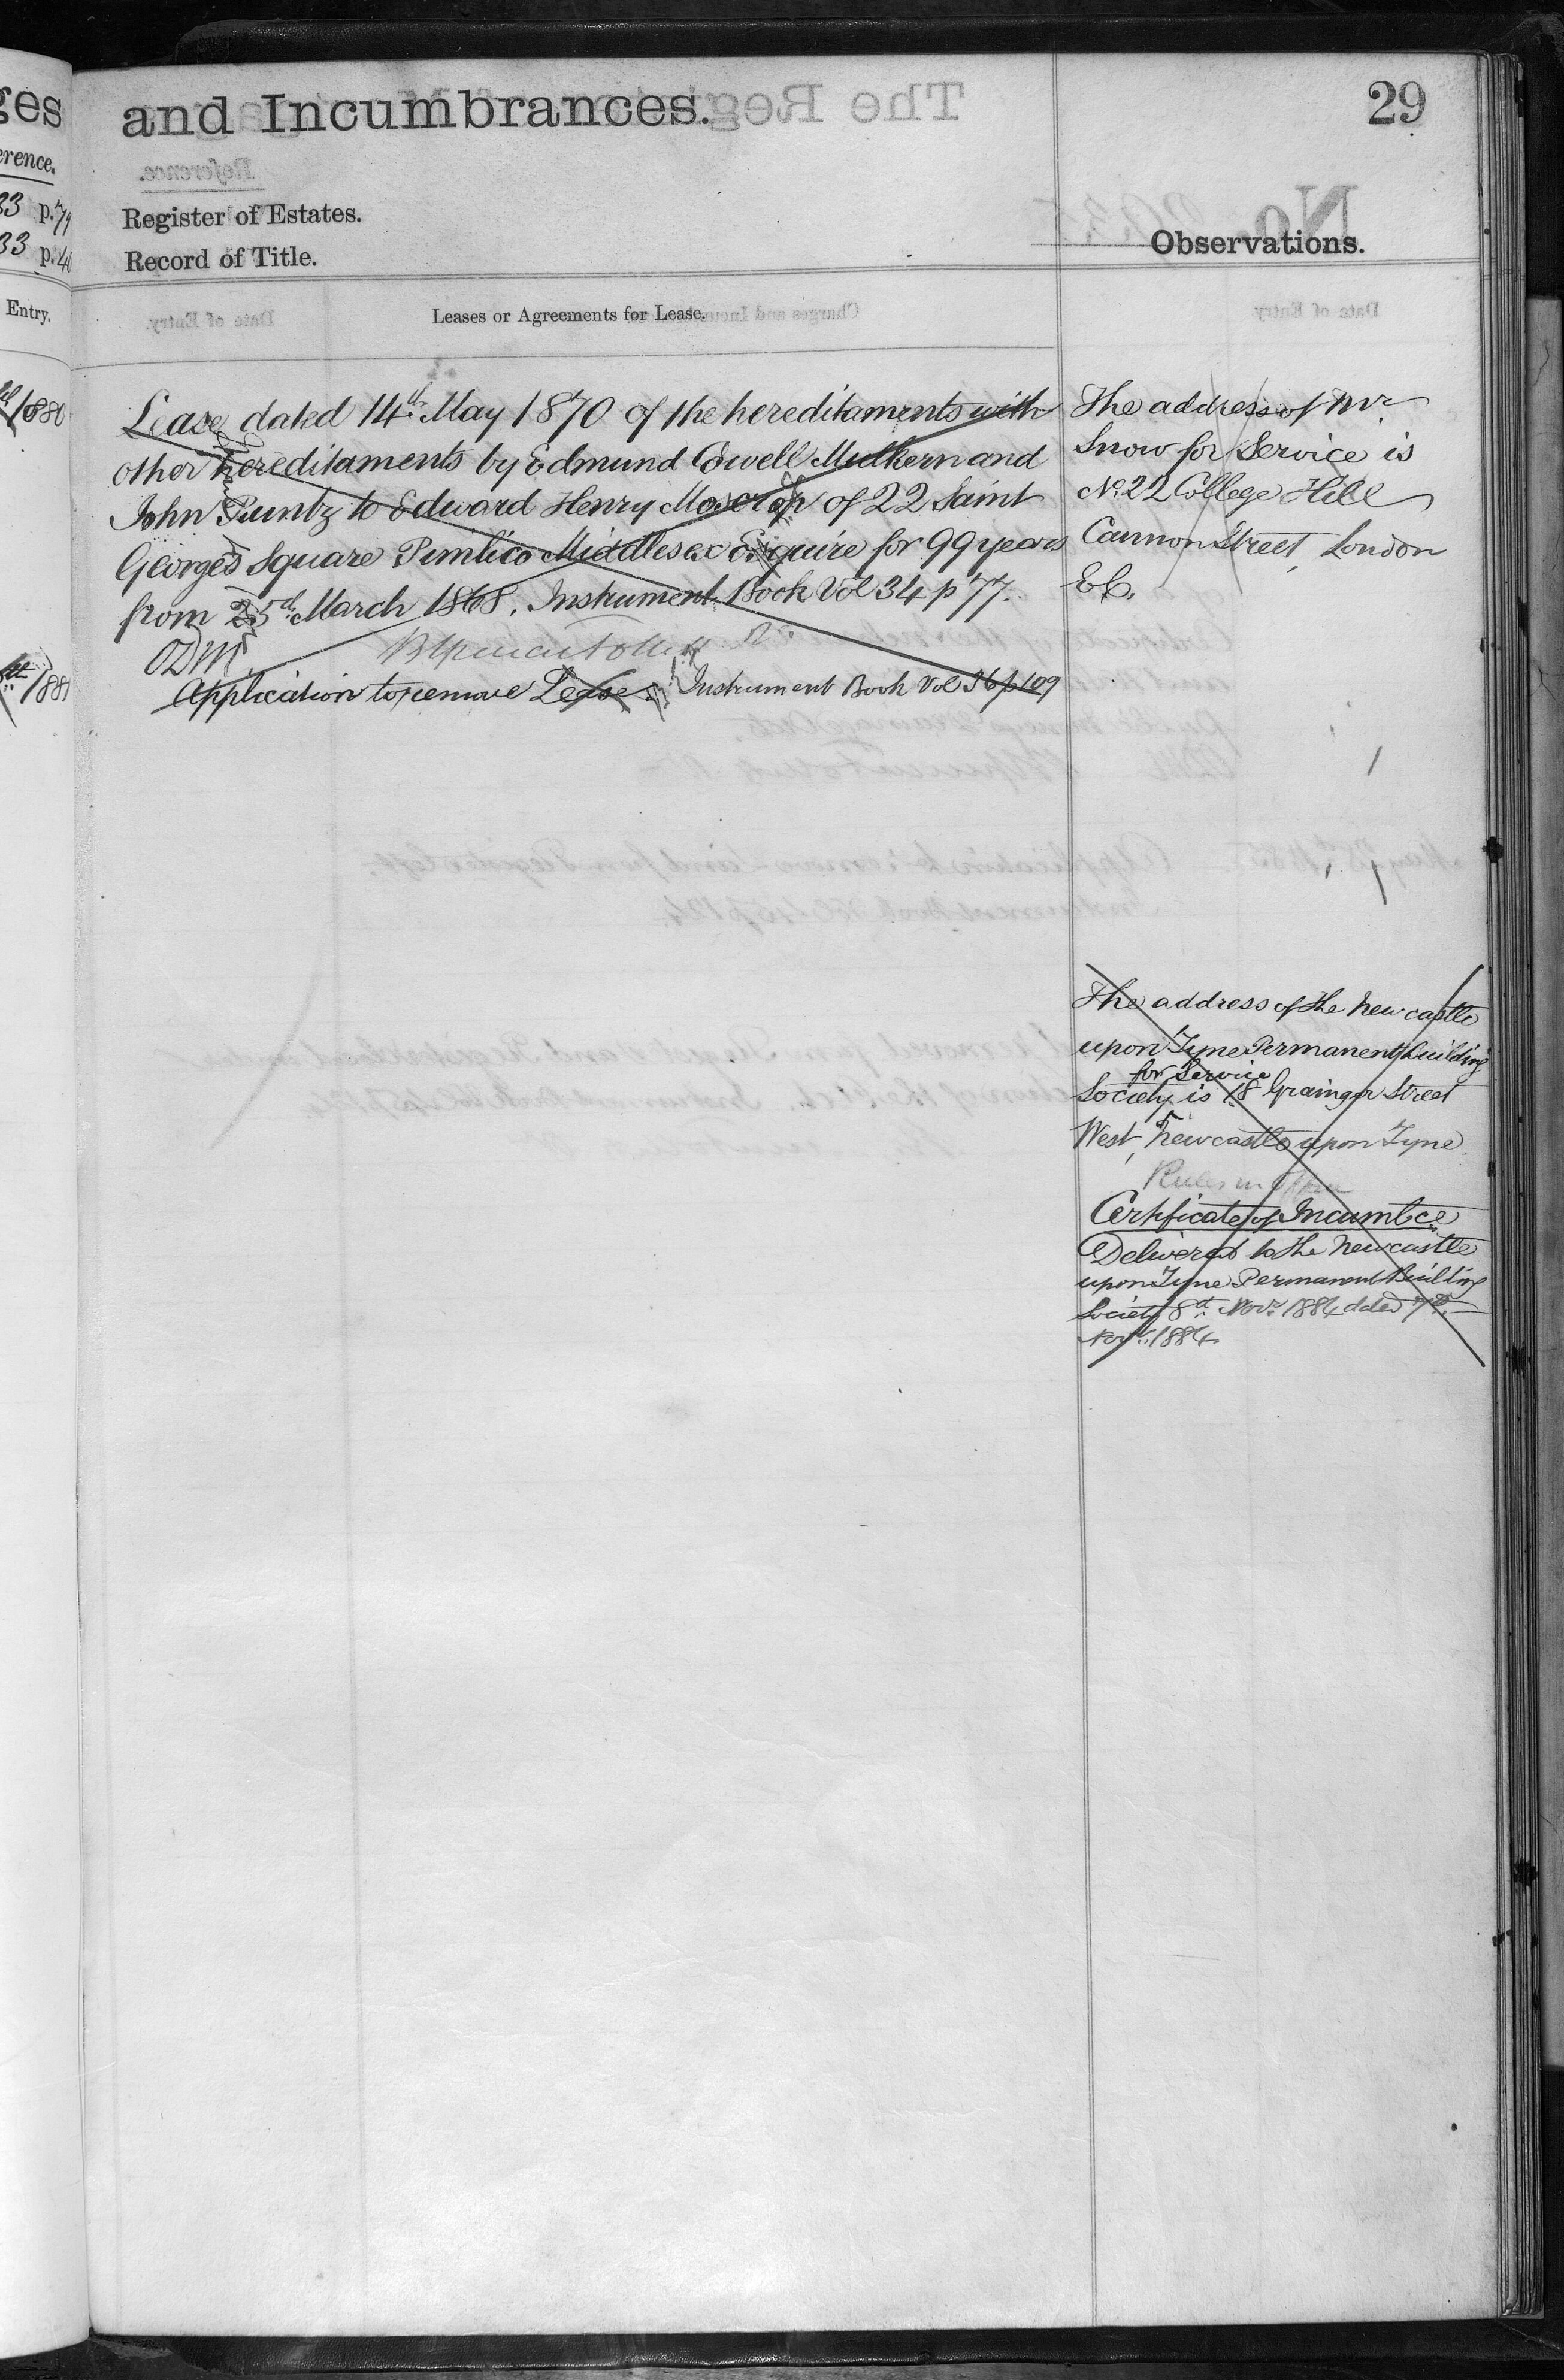 and Incumbrances.
29
Register of Estates.
Record of Title.
Observations.
Leases or Agreements for Lease.
Lease dated 14th May 1870 of the hereditaments with
other hereditaments by Edmund Cowell Mulkern and
John Puntz to Edward Henry Moscrop of 22 Saint
George's Square Pimlico Middlesex Esquire for 99 years
from 25th March 1868. Instrument Book Vol 34 p 77.
ODM
Application to remove Lease. Instrument Book Vol 36 p 109
The address of Mr
Snow for Service is
No. 22 College Hill
Cannon Street, London
E.C.
The address of the Newcastle
upon Tyne Permanent Building
for Service
Society is 18 Grainger Street
West, Newcastle upon Tyne
Rules in Office
Certificate of Incumbce
Delivered to the Newcastle
upon Tyne Permanent Building
Society 8th Novr 1884 dated 7th
Novr 1884
ges
erence.
33 p. 79
33 p. 4
Entry.
1880
1881